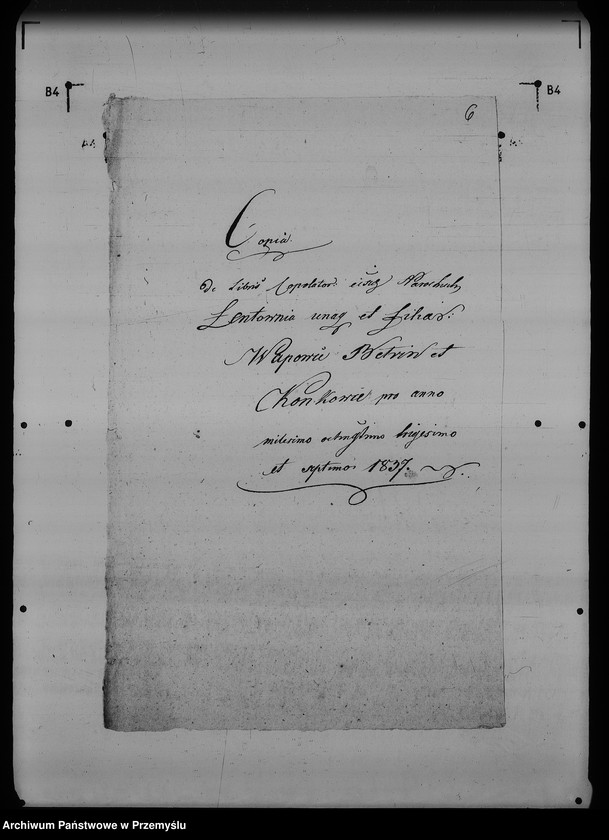 B4
B4
6
Copia
de Libris Copulator
Lentownia unaq et filiar:
Wapowce Betwin et
Chonkowce pro anno
milesimo octingesimo trigesimo
et septimo 1837.
Archiwum Państwowe w Przemyślu